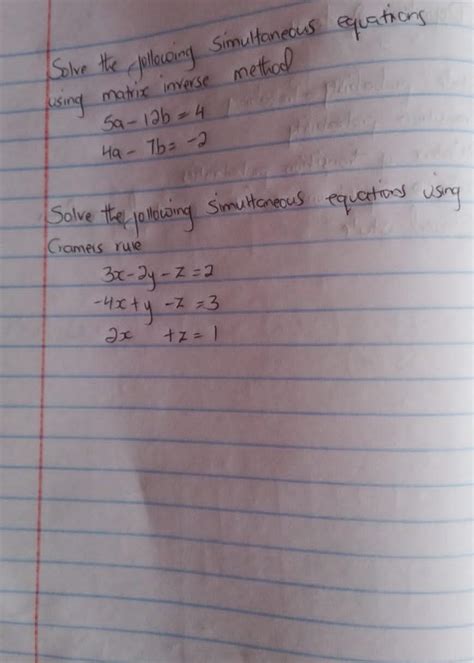 Solve the following simultaneous equations
using matrix inverse method
5a - 12b = 4
4a - 7b = -2
Solve the following simultaneous equations using
Cramers rule
3x - 2y - z = 2
-4x + y - z = 3
2x + z = 1